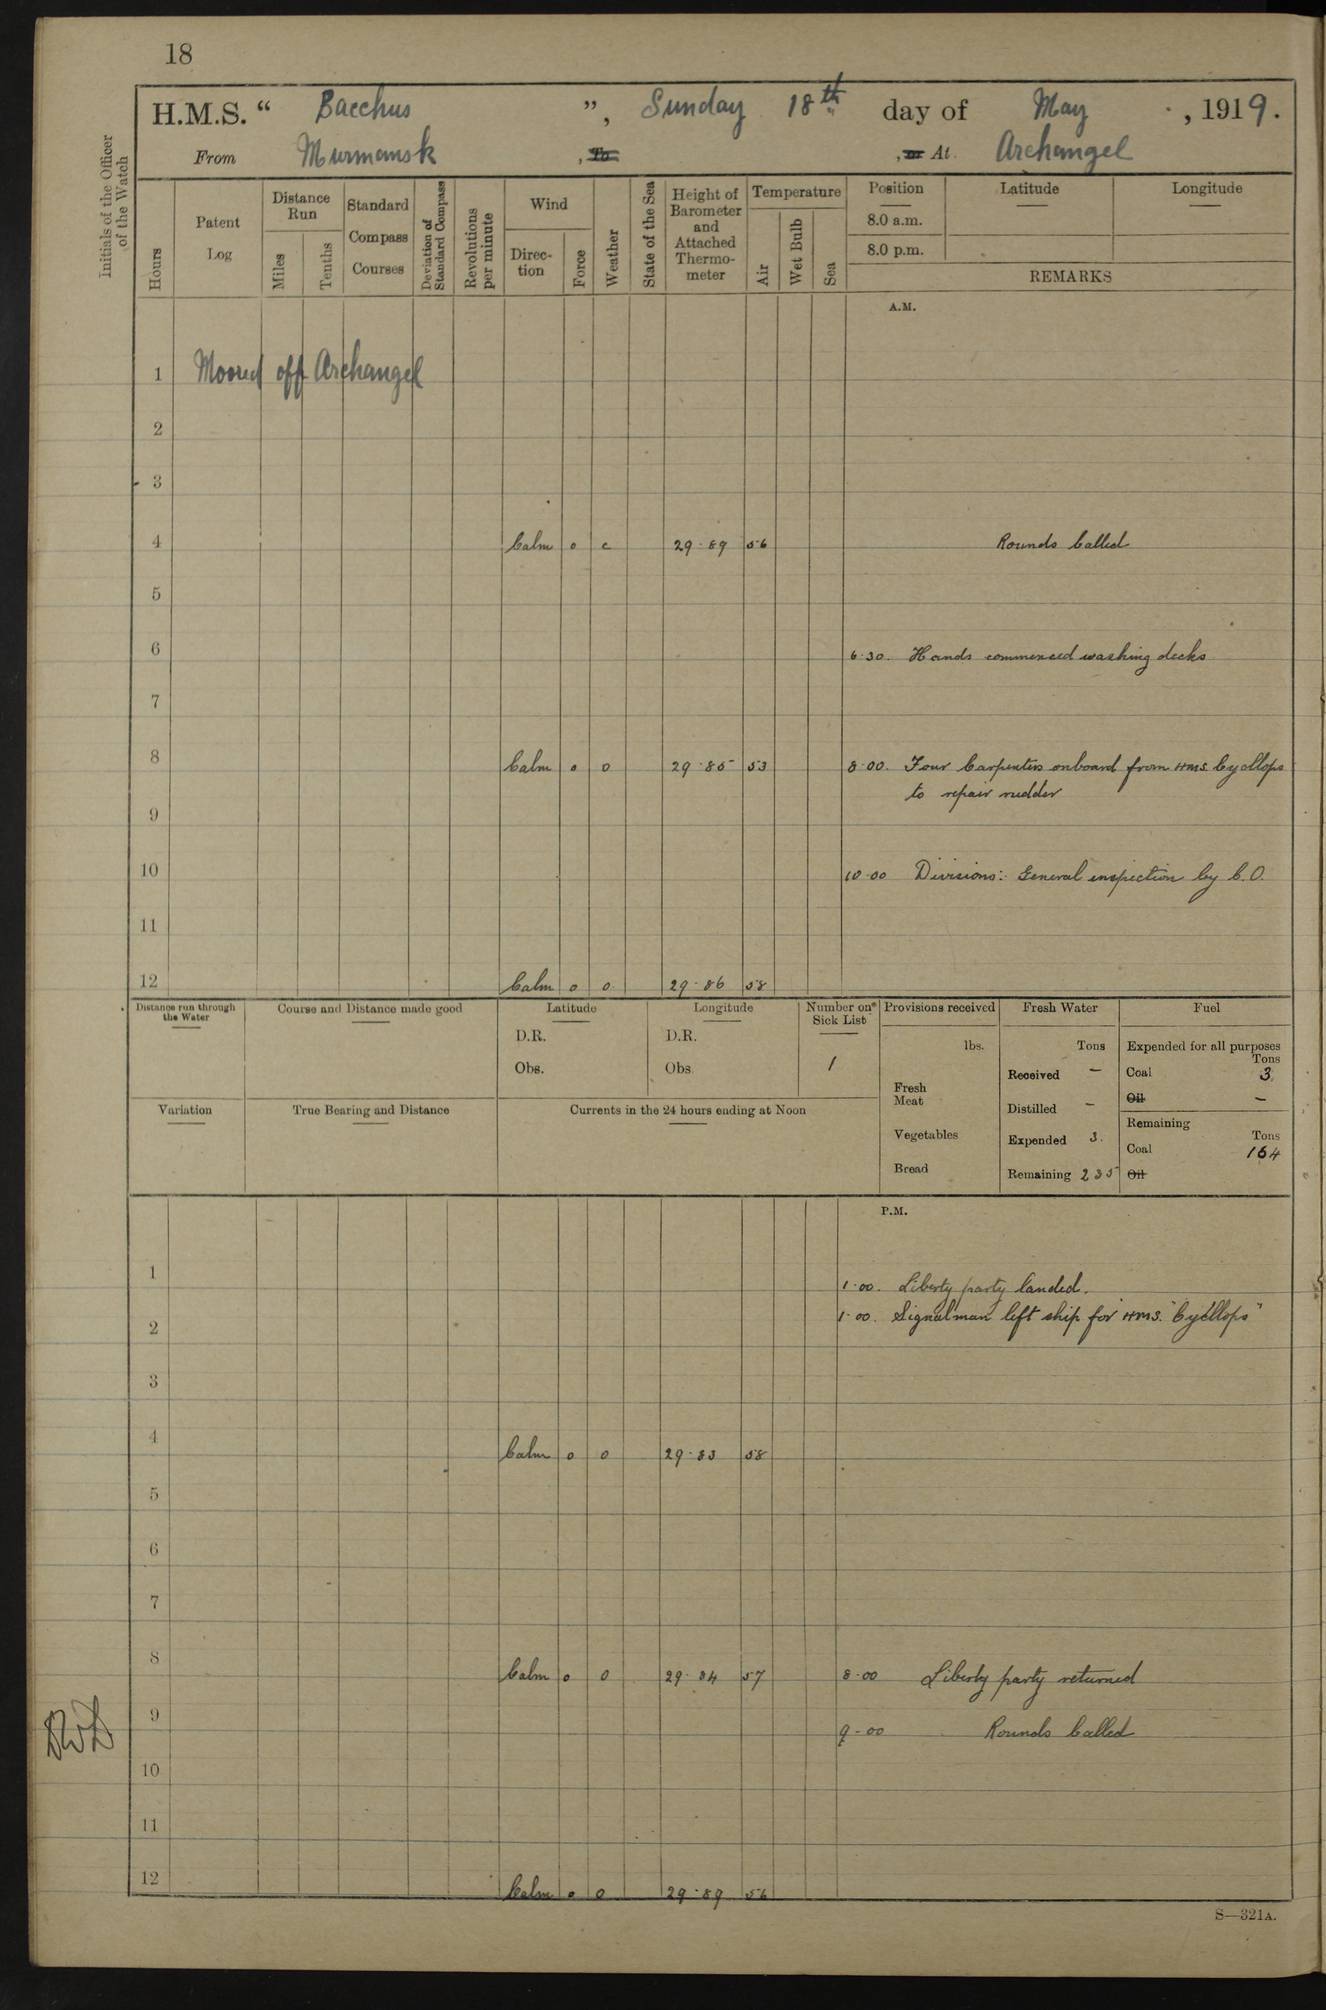 18
H.M.S. “ Bacchus ”, Sunday 18th day of May , 1919.
From Murmansk , To , or At Archangel
Initials of the Officer of the Watch
Hours
Patent Log
Distance Run
Miles
Tenths
Standard Compass Courses
Deviation of Standard Compass
Revolutions per minute
Wind
Direc-tion
Force
Weather
State of the Sea
Height of Barometer and Attached Thermo-meter
Temperature
Air
Wet Bulb
Sea
Position Latitude Longitude
8.0 a.m.
8.0 p.m.
REMARKS
A.M.
1 Moored off Archangel
2
3
4 Calm 0 c 29·89 56 Rounds Called
5
6 6·30. Hands commenced washing decks
7
8 Calm 0 0 29·85 53 8·00. Four Carpenters onboard from HMS. Cycllops
to repair rudder
9
10 10·00 Divisions: General inspection by C.O.
11
12 Calm 0 0 29·86 58
Distance run through the Water
Course and Distance made good
Latitude
D.R.
Obs.
Longitude
D.R.
Obs.
Number on Sick List
1
Variation
True Bearing and Distance
Currents in the 24 hours ending at Noon
Provisions received
lbs.
Fresh Meat
Vegetables
Bread
Fresh Water
Tons
Received –
Distilled –
Expended 3.
Remaining 235
Fuel
Expended for all purposes
Tons
Coal 3.
Oil –
Remaining
Tons
Coal 164
Oil
P.M.
1 1·00. Liberty party landed.
2 1·00. Signalman left ship for HMS. "Cycllops"
3
4 Calm 0 0 29·83 58
5
6
7
8 Calm 0 0 29·84 57 8·00 Liberty party returned
9 9-00 Rounds Called
10
11
12 Calm 0 0 29·89 56
S—321A.